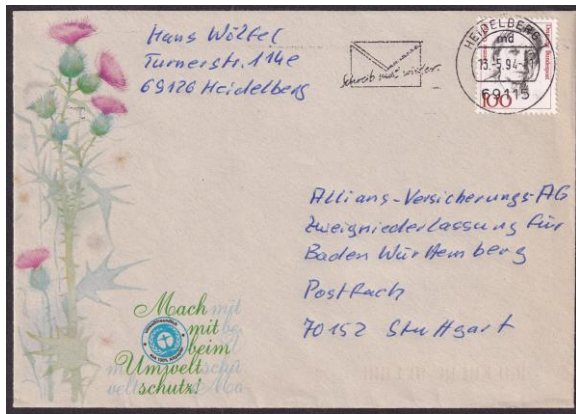 Hans Wölfel
Turnerstr. 114e
69126 Heidelberg
Schreib mal wieder.
HEIDELBERG
md
13.-5.94-21
69115
100
Allians-Versicherungs-AG
Zweigniederlassung für
Baden Württemberg
Postfach
70152 Stuttgart
Mach mit
mit
beim
Umwelt
schutz!